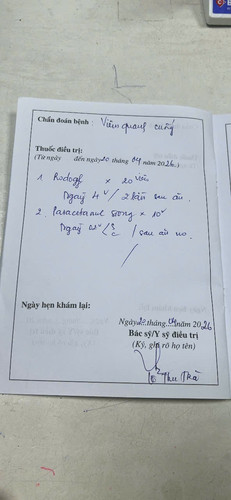 Chẩn đoán bệnh : Viêm quanh cuống
Thuốc điều trị:
(Từ ngày đến ngày 20 tháng 04 năm 2026.)
1 Rodogl x 20 viên
Ngày 4v / 2 lần sau ăn.
2. Paracetamol 500mg x 10v
Ngày 02v / sau ăn no
Ngày hẹn khám lại:
Ngày 20 tháng 04 năm 2026
Bác sỹ/Y sỹ điều trị
(Ký, ghi rõ họ tên)
Thu Trà